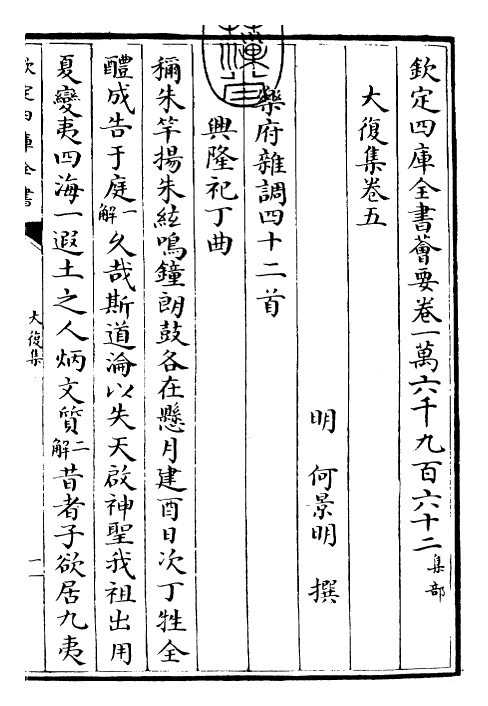 欽定四庫全書薈要卷一萬六千九百六十二集部
大復集卷五
明 何景明 撰
樂府雜調四十二首
興隆祀丁曲
稱朱竿揚朱絃鳴鐘朗鼓各在懸月建酉日次丁牲全
醴成告于庭一解久哉斯道淪以失天啟神聖我祖出用
夏變夷四海一遐土之人炳文質二解昔者子欲居九夷
欽定四庫全書
大復集
一